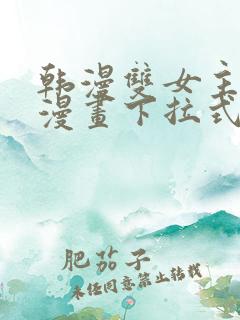 韩漫雙女主
漫畫下拉式
肥茄子
未经同意禁止转载